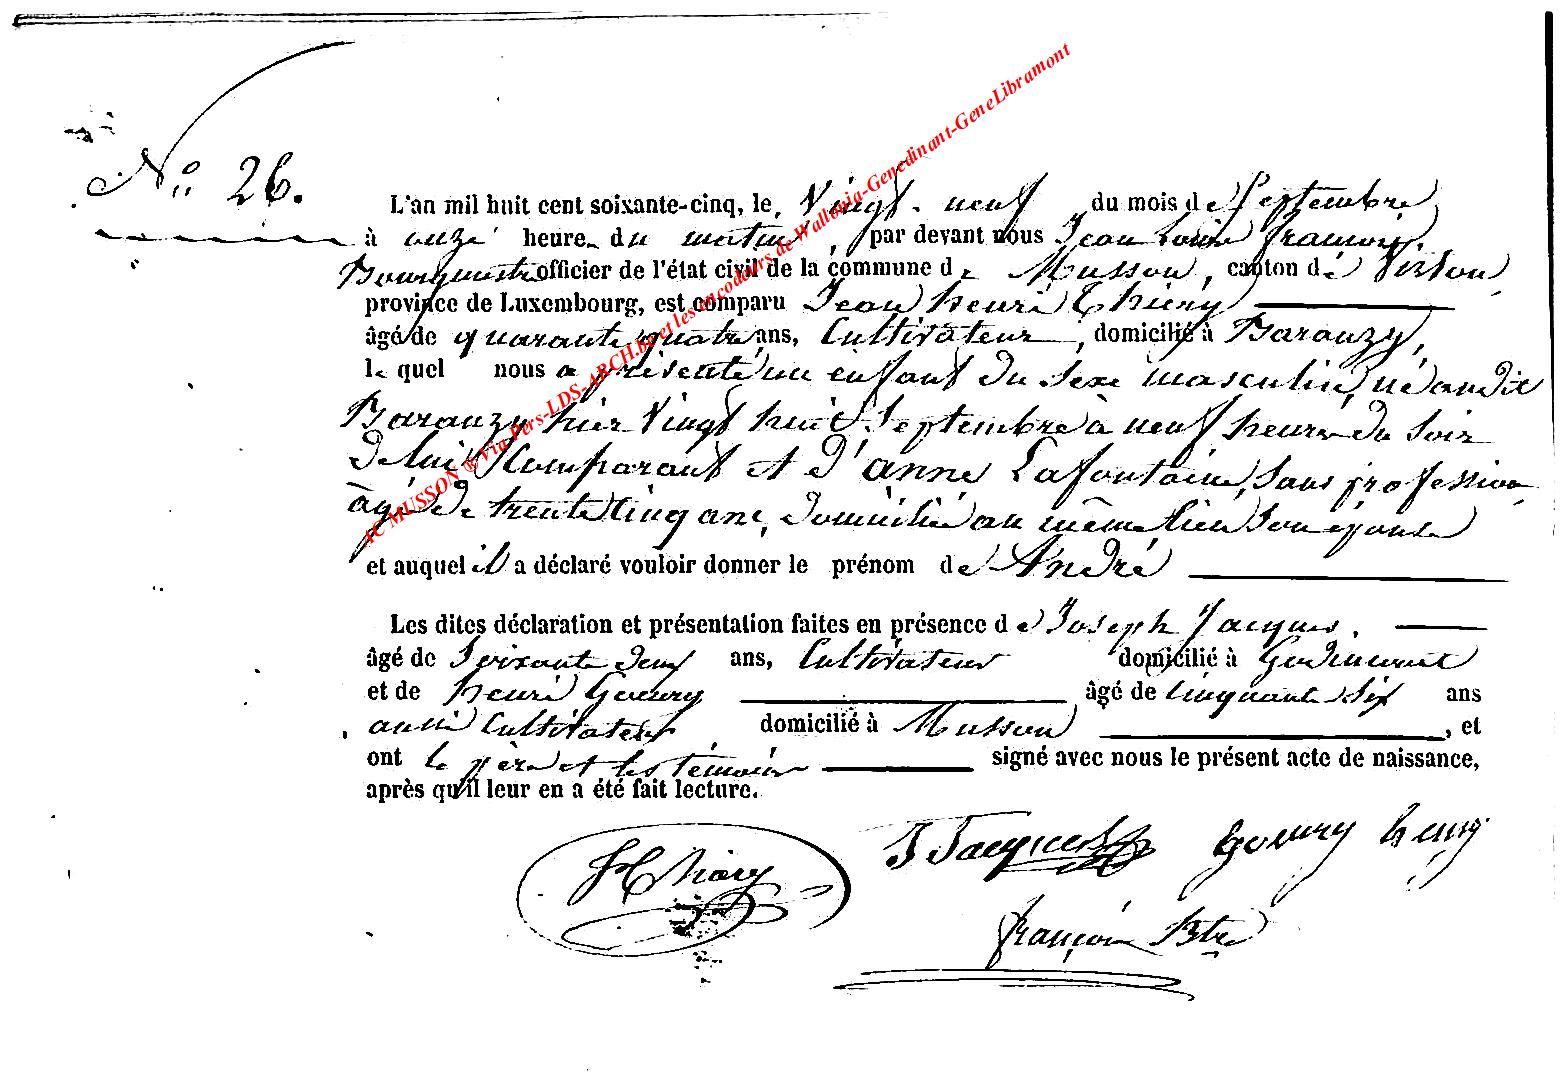 N° 26.
L'an mil huit cent soixante-cinq, le Vingt-neuf du mois de Septembre
à onze heure du matin, par devant nous Jean Louis François,
Bourgmestre officier de l'état civil de la commune de Musson, canton de Virton,
province de Luxembourg, est comparu Jean henri Thiery
âgé de quarante quatre ans, Cultivateur, domicilié à Baranzy,
le quel nous a présenté un enfant du sexe masculin, né audit
Baranzy hier vingt huit Septembre à neuf heures du soir
de lui comparant et d'anne Lafontaine, sans profession
âgée de trente cinq ans, domiciliée au même lieu son épouse
et auquel il a déclaré vouloir donner le prénom de André
Les dites déclaration et présentation faites en présence de Joseph Jacques.
âgé de Soixante deux ans, Cultivateur domicilié à Godincourt
et de henri Goeury âgé de Cinquante six ans
aussi Cultivateur domicilié à Musson, et
ont le père et les témoins signé avec nous le présent acte de naissance,
après qu'il leur en a été fait lecture.
JHThiery J Jacques Goeury henry
françois Btre
AC MUSSON ® Via Pers-LDS-ARCH.be et les encodeurs de Wallonia-Genedinant-GeneLibramont